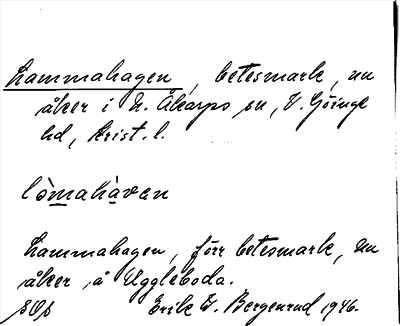 Lammahagen, betesmark, nu
åker i N. Åkarps sn, V. Göinge
hd, Krist. l.
lòmahàven
Lammahagen, förr betesmark, nu
åker, å Uggleboda.
Erik W. Bergenrud 1946.